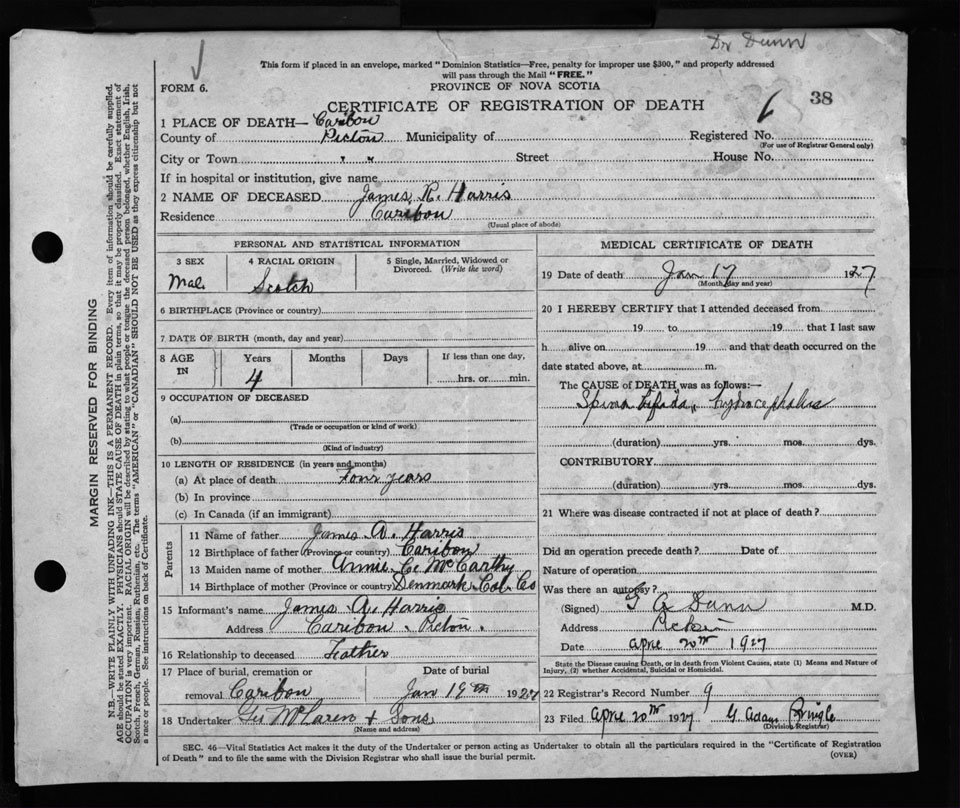 Dr Dunn
This form if placed in an envelope, marked "Dominion Statistics—Free, penalty for improper use $300," and properly addressed
will pass through the Mail "FREE."
FORM 6.
PROVINCE OF NOVA SCOTIA
CERTIFICATE OF REGISTRATION OF DEATH
6 38
1 PLACE OF DEATH— Caribou
County of Pictou Municipality of Registered No.
(For use of Registrar General only)
City or Town " " Street House No.
If in hospital or institution, give name
2 NAME OF DECEASED James R. Harris
Residence Caribou
(Usual place of abode)
PERSONAL AND STATISTICAL INFORMATION
3 SEX 4 RACIAL ORIGIN 5 Single, Married, Widowed or
Divorced. (Write the word)
Male Scotch
6 BIRTHPLACE (Province or country)
7 DATE OF BIRTH (month, day and year)
8 AGE IN Years Months Days If less than one day,
4 hrs. or min.
9 OCCUPATION OF DECEASED
(a)
(Trade or occupation or kind of work)
(b)
(Kind of industry)
10 LENGTH OF RESIDENCE (in years and months)
(a) At place of death Four years
(b) In province
(c) In Canada (if an immigrant)
Parents
11 Name of father James A. Harris
12 Birthplace of father (Province or country) Caribou
13 Maiden name of mother Annie McCarthy
14 Birthplace of mother (Province or country) Denmark Col. Co
15 Informant's name James A. Harris
Address Caribou Pictou.
16 Relationship to deceased Father
17 Place of burial, cremation or Date of burial
removal Caribou Jan 19th 1927
18 Undertaker Geo McLaren & Sons
(Name and address)
MEDICAL CERTIFICATE OF DEATH
19 Date of death Jan 17 1927
(Month, day and year)
20 I HEREBY CERTIFY that I attended deceased from
19 to 19 that I last saw
h alive on 19 and that death occurred on the
date stated above, at m.
The CAUSE of DEATH was as follows:—
Spina bifida, hydrocephalus
(duration) yrs. mos. dys.
CONTRIBUTORY
(duration) yrs. mos. dys.
21 Where was disease contracted if not at place of death?
Did an operation precede death? Date of
Nature of operation
Was there an autopsy?
(Signed) G A Dunn M.D.
Address Pictou
Date April 20th 1927
State the Disease causing Death, or in death from Violent Causes, state (1) Means and Nature of
Injury, (2) whether Accidental, Suicidal or Homicidal.
22 Registrar's Record Number 9
23 Filed April 20th 1927 G. Adam Pringle
(Division Registrar)
SEC. 46—Vital Statistics Act makes it the duty of the Undertaker or person acting as Undertaker to obtain all the particulars required in the "Certificate of Registration
of Death" and to file the same with the Division Registrar who shall issue the burial permit.
(OVER)
MARGIN RESERVED FOR BINDING
N.B.—WRITE PLAINLY WITH UNFADING INK—THIS IS A PERMANENT RECORD. Every item of information should be carefully supplied.
AGE should be stated EXACTLY. PHYSICIANS should STATE CAUSE OF DEATH in plain terms, so that it may be properly classified. Exact statement of
OCCUPATION is very important. RACIAL ORIGIN will be described by stating to what people or tongue the deceased person belonged, whether English, Irish,
Scotch, French, German, Russian, Ruthenian, etc. The terms "AMERICAN" or "CANADIAN" SHOULD NOT BE USED as they express citizenship but not
a race or people. See instructions on back of Certificate.